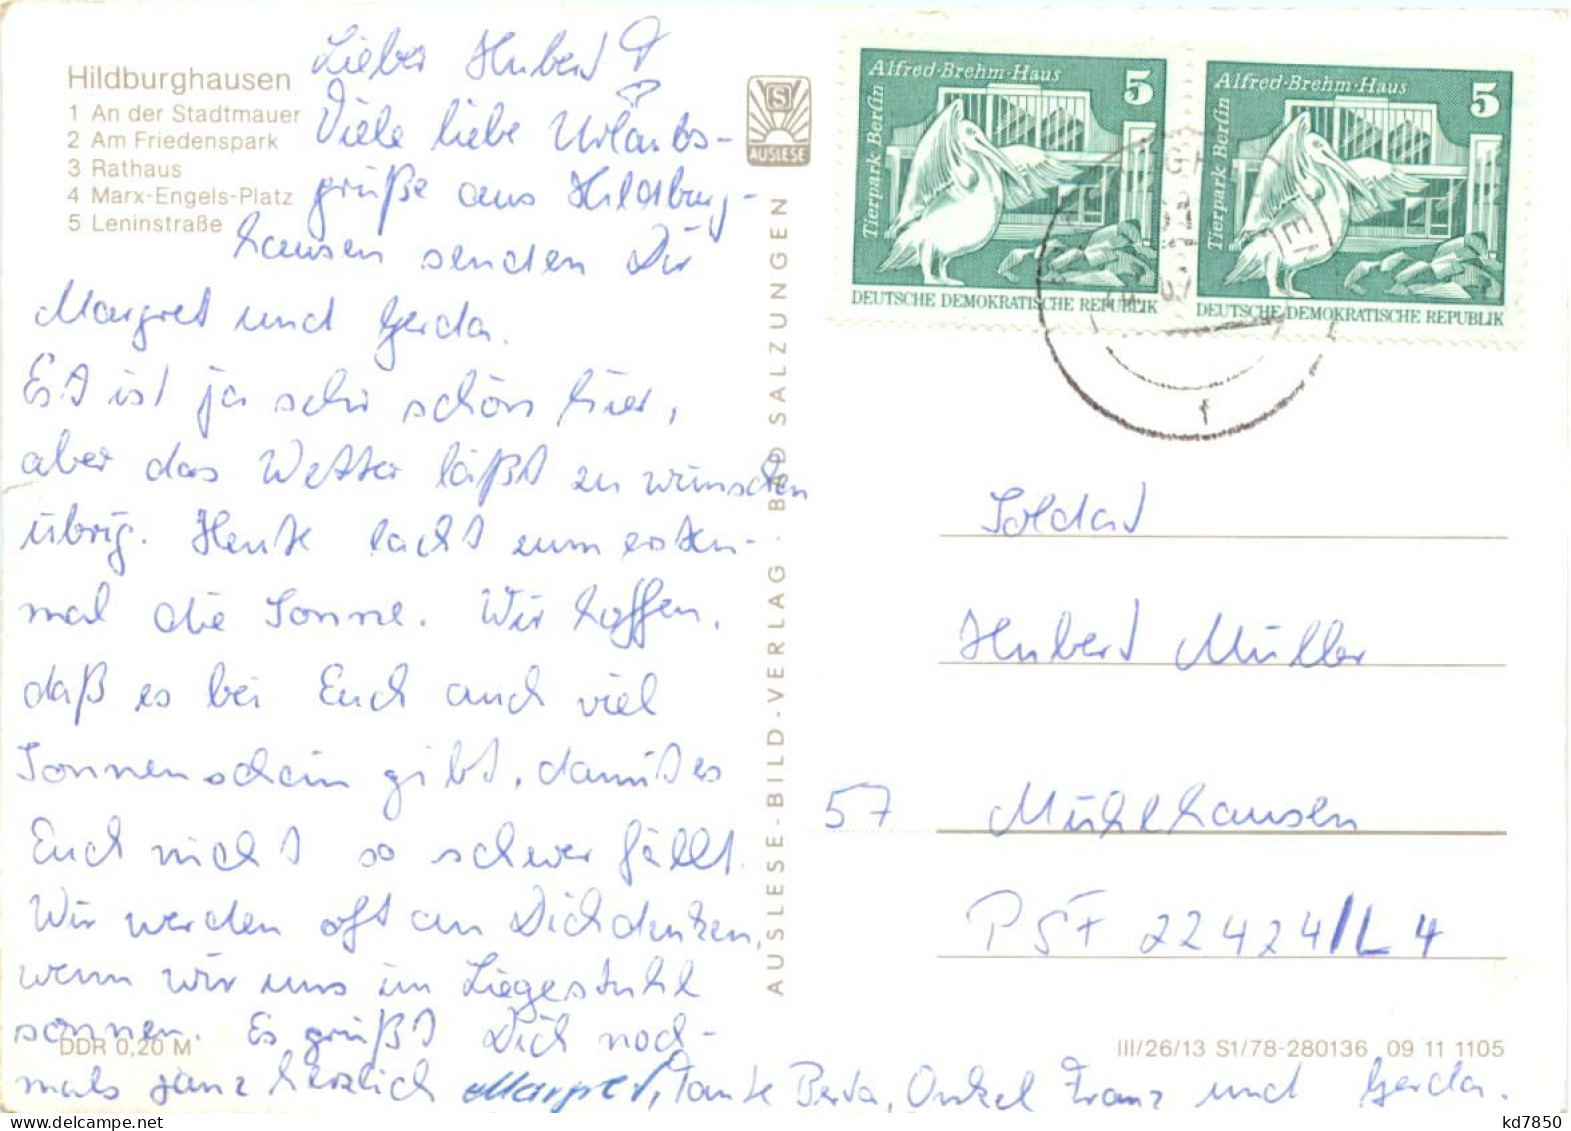 Hildburghausen
1 An der Stadtmauer
2 Am Friedenspark
3 Rathaus
4 Marx-Engels-Platz
5 Leninstraße
Lieber Hubert!
Viele liebe Urlaubs-
grüße aus Hildburg-
hausen senden Dir
Margret und Gerda.
Es ist ja sehr schön hier,
aber das Wetter läßt zu wünschen
übrig. Heute lacht zum ersten-
mal die Sonne. Wir hoffen,
daß es bei Euch auch viel
Sonnenschein gibt, damit es
Euch nicht so schwer fällt.
Wir werden oft an Dich denken,
wenn wir uns im Liegestuhl
sonnen. Es grüßt Dich noch-
mals ganz herzlich Margret, Tante Berta, Onkel Franz und Gerda.
DDR 0,20 M
S
AUSLESE
AUSLESE-BILD-VERLAG · BAD SALZUNGEN
Alfred-Brehm-Haus
5
Tierpark Berlin
DEUTSCHE DEMOKRATISCHE REPUBLIK
Alfred-Brehm-Haus
5
Tierpark Berlin
DEUTSCHE DEMOKRATISCHE REPUBLIK
f
Soldat
Hubert Müller
57 Mühlhausen
PSF 22424/L4
III/26/13 S1/78-280136 09 11 1105
kd7850